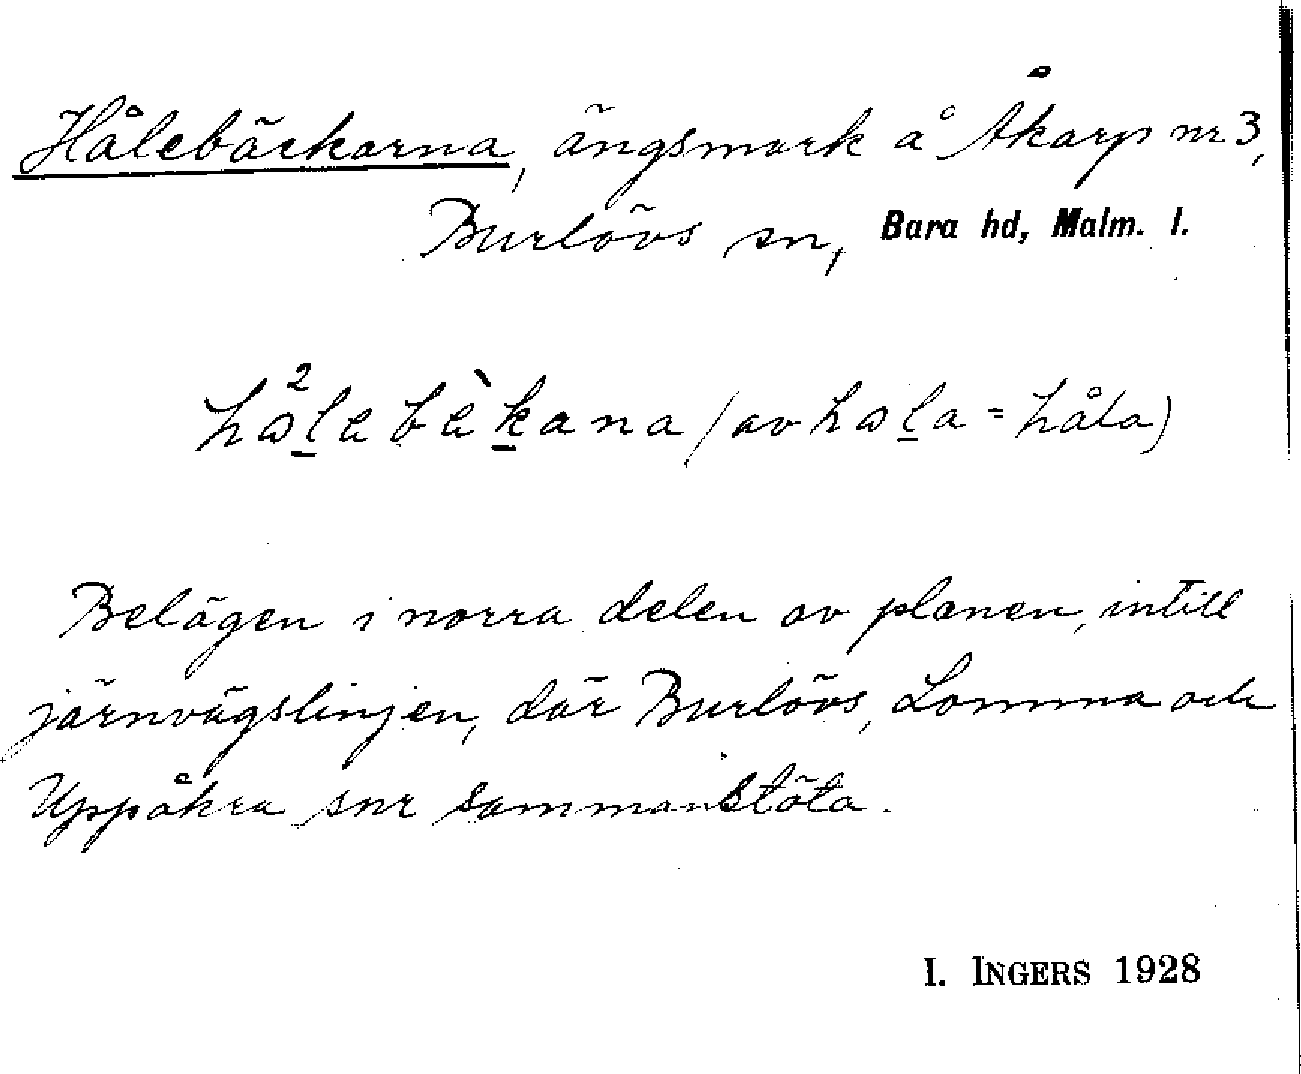 Hålebäckarna, ängsmark å Åkarp nr 3,
Burlövs sn, Bara hd, Malm. l.
hɷ²lebèkana (av hɷla = håla)
Belägen i norra delen av planen, intill
järnvägslinjen, där Burlövs, Lomma och
Uppåkra snr sammanstöta.
I. INGERS 1928